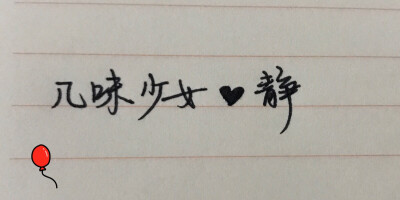 几味少女♥静